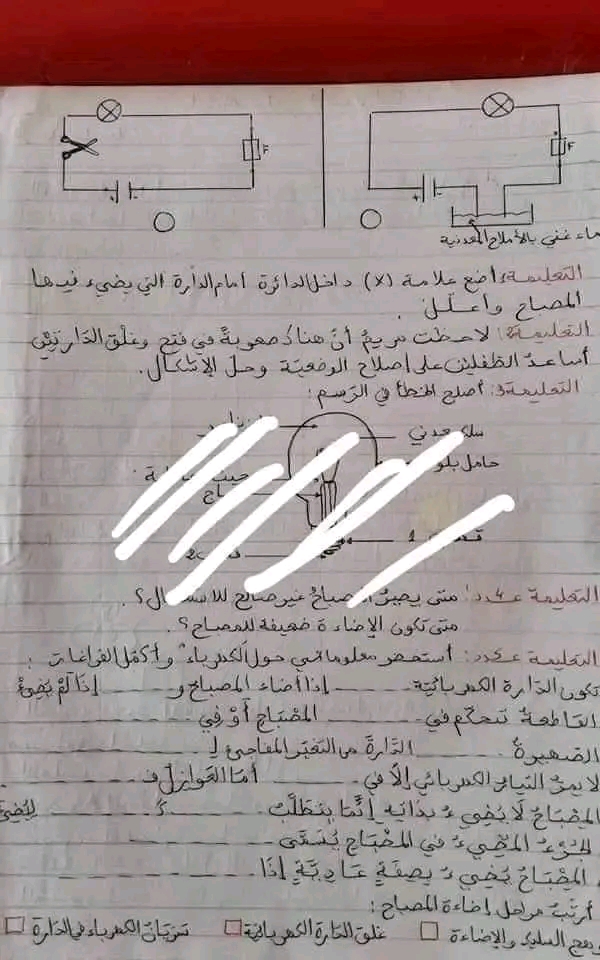 F
F
+ -
+ -
ماء غني بالأملاح المعدنية
التعليمة1: أضع علامة (x) داخل الدائرة أمام الدارة التي يضيء فيها
المصباح وأعلل.
التعليمة2: لاحظت مريم أنّ هناك صعوبة في فتح وغلق الدارتين
أساعد الطفلين على إصلاح الوضعية وحل الإشكال.
التعليمة3: أصلح الخطأ في الرسم:
سلك معدني
حامل
1
2
التعليمة عـ4ـدد: متى يصبح المصباح غير صالح للاستعمال؟
متى تكون الإضاءة ضعيفة للمصباح؟
التعليمة عـ5ـدد: أستحضر معلوماتي حول الكهرباء وأكمل الفراغات:
تكون الدارة الكهربائية ـــــ إذا أضاء المصباح و ـــــ إذا لمْ يُضِئْ
القاطعة تتحكّم في ـــــ المصْبَاح أوْ في ـــــ
الصهيرة ـــــ الدّارة من التغيّر المفاجئ لـ ـــــ
لا يمرّ التيار الكهربائي إلّا في ـــــ أمّا العَوازل فـ ـــــ
المِصْبَاحُ لَا يُضِيءُ بذاته إنَّمَا يتطلَّبُ ـــــ وَ ـــــ لِيُضِيءَ
الجُزْءُ المُضِيءُ في المصْبَاح يُسَمَّى ـــــ
المِصْبَاحُ يُضِيءُ بِصِفَةٍ عَادِيَّةٍ إذَا ـــــ
أرتّبُ مراحل إضاءة المصباح:
توهج السلك والإضاءة □ غلق الدّارة الكهربائيّة □ سَرَيَانُ الكهرباء في الدّارة □